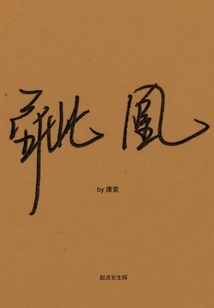 凰
by 康索
起点女生网